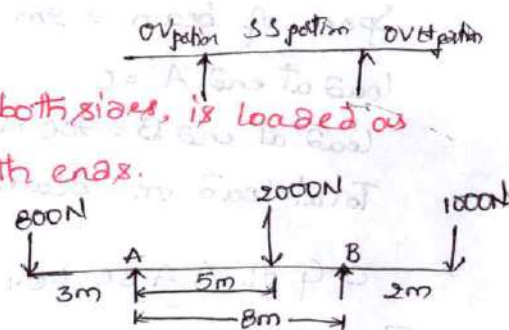 OV portion SS portion OVH portion
both sides, is loaded as
th ends.
800N 2000N 1000N
A B
3m 5m 2m
8m